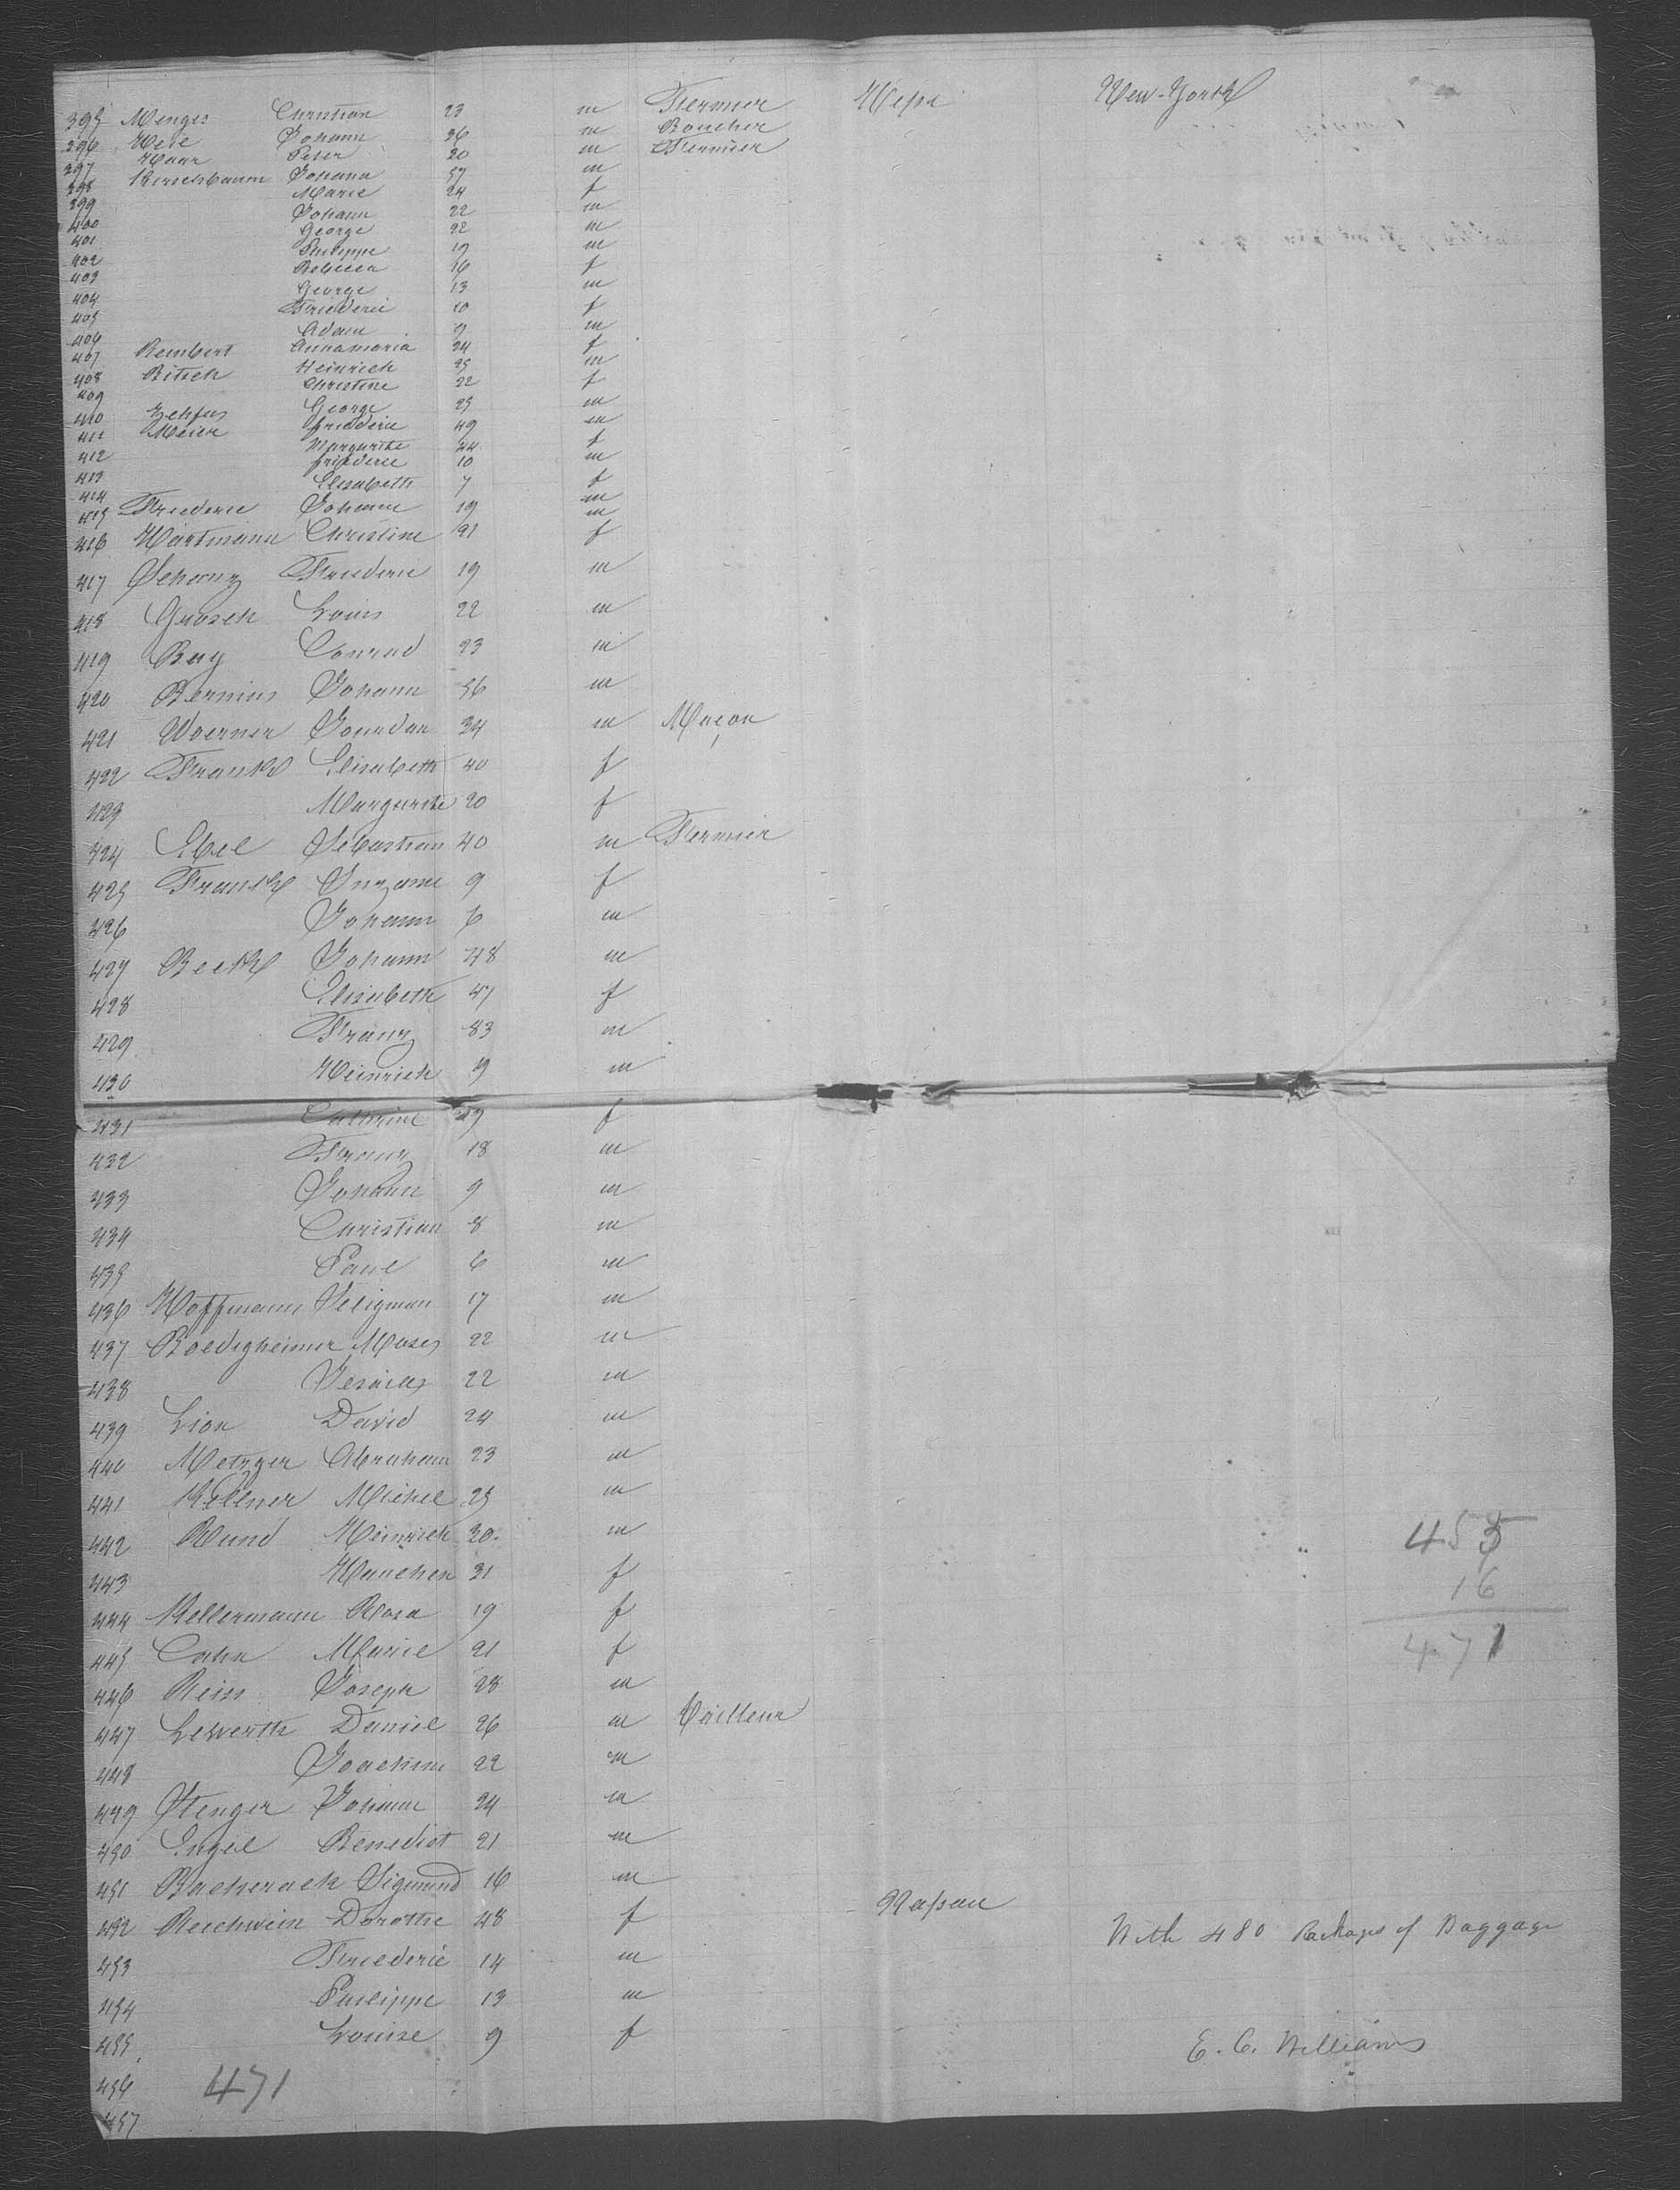 395 Menges Christian 23 m Fermier Hesse New-York
396 Heil Johann 36 m Boucher
397 Haar Peter 20 m Fermier
398 Kirschbaum Johann 57 m
399 Marie 24 f
400 Johann 22 m
401 George 22 m
402 Philippe 19 m
403 Rebecca 16 f
404 George 13 m
405 Friederic 10 f
406 Adam 9 m
407 Rembert Annamaria 24 f
408 Bitsch Heinrich 25 m
409 Christine 22 f
410 Zehfus George 25 m
411 Meier friederic 49 m
412 Margarithe 24 f
413 friederic 10 m
414 Elisabeth 7 f
415 Friederic Johann 19 m
416 Hartmann Christine 21 f
417 Schanz Friederic 19 m
418 Grosch Louis 22 m
419 Bay Conrad 23 m
420 Bernius Johann 56 m
421 Woerner Jourdan 34 m Maçon
422 Frank Elisabeth 40 f
423 Margarithe 20 f
424 Ebel Sebastian 40 m Fermier
425 Frank Suzanne 9 f
426 Johann 6 m
427 Beck Johann 48 m
428 Elisabeth 47 f
429 Franz 83 m
430 Heinrich 19 m
431 Cathrine f
432 Franz 18 m
433 Johann 9 m
434 Christian 8 m
435 Paul 6 m
436 Hoffmann Seligman 17 m
437 Boedigheimer Moses 22 m
438 22 m
439 Lion David 24 m
440 Metzger Abraham 23 m
441 Kellner Michel 25 m
442 Rund Heinrich 30 m
443 Hanchen 31 f
444 Kellermann Rosa 19 f
445 Cahn Marie 21 f
446 Reiss Joseph 28 m
447 Daniel 26 m Tailleur
448 Joachim 22 m
449 Stenger Johann 24 m
450 Engel Benedict 21 m
451 Bacherach Sigmund 16 m
452 Reichwein Dorothe 48 f Nassau
453 Friederic 14 m
454 Philippe 13 m
455 Louise 9 f
456 471
457
455
16
471
With 480 Packages of Baggage
E. C. Williams